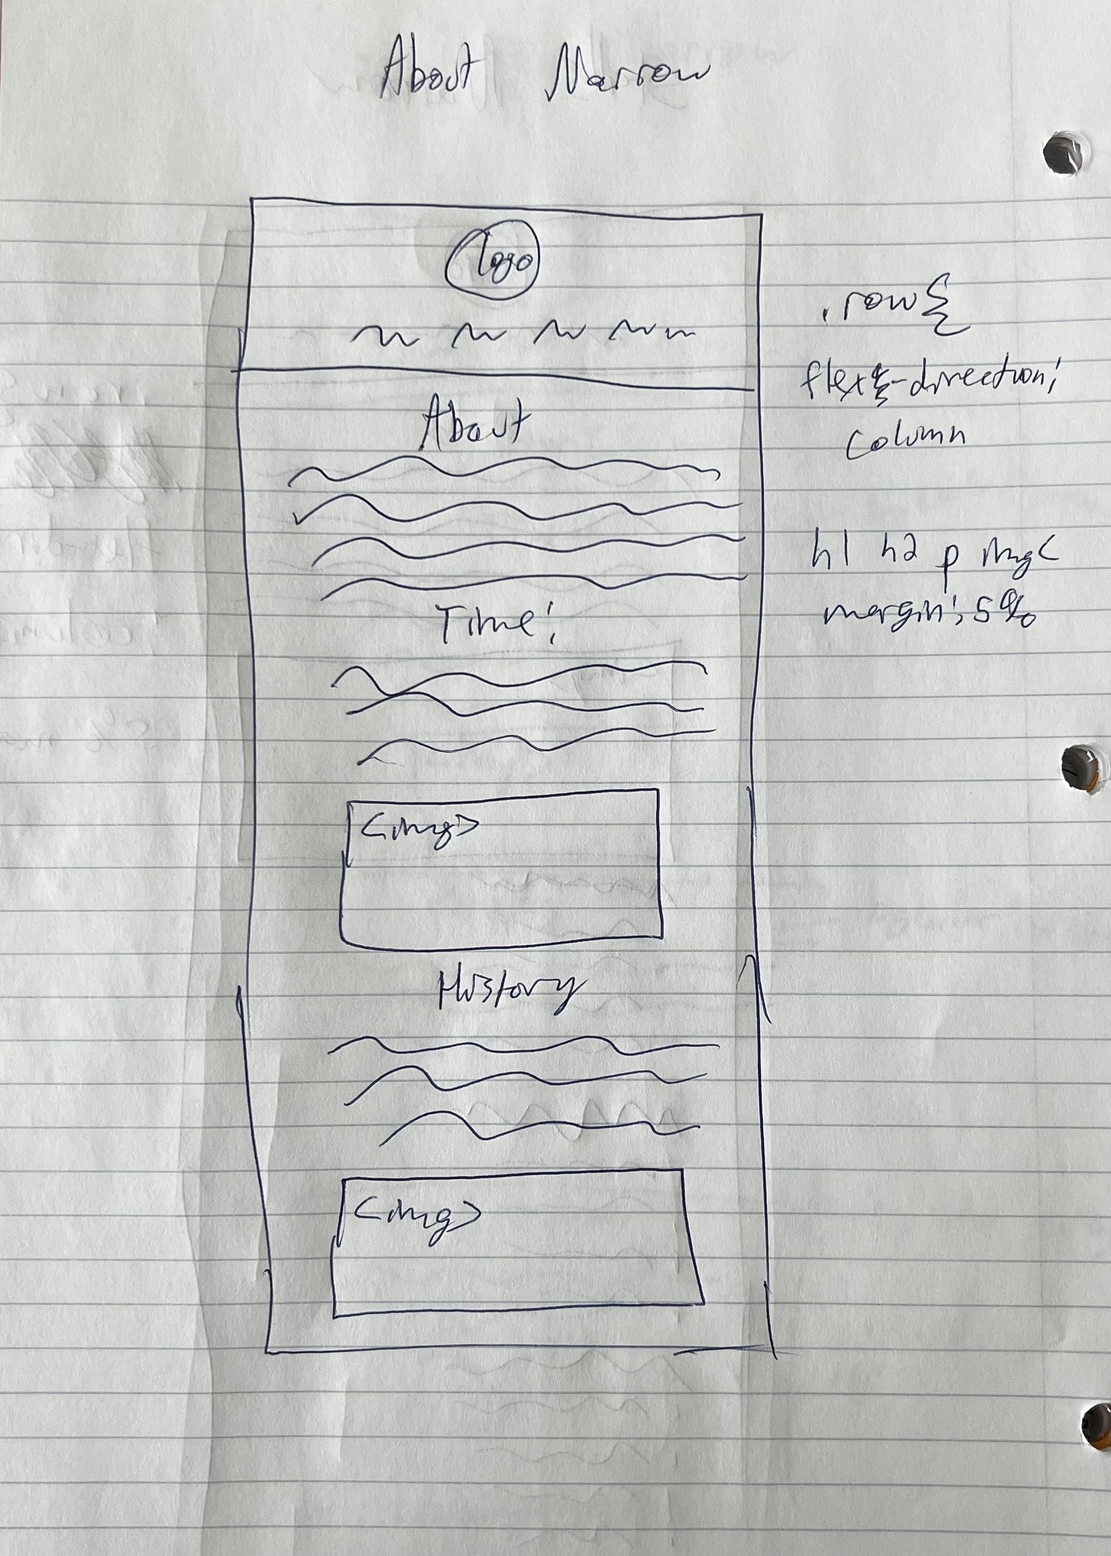 About Narrow
logo
About
Time:
<img>
History
<img>
.row{
flex-direction:
column
h1 h2 p img{
margin: 5%